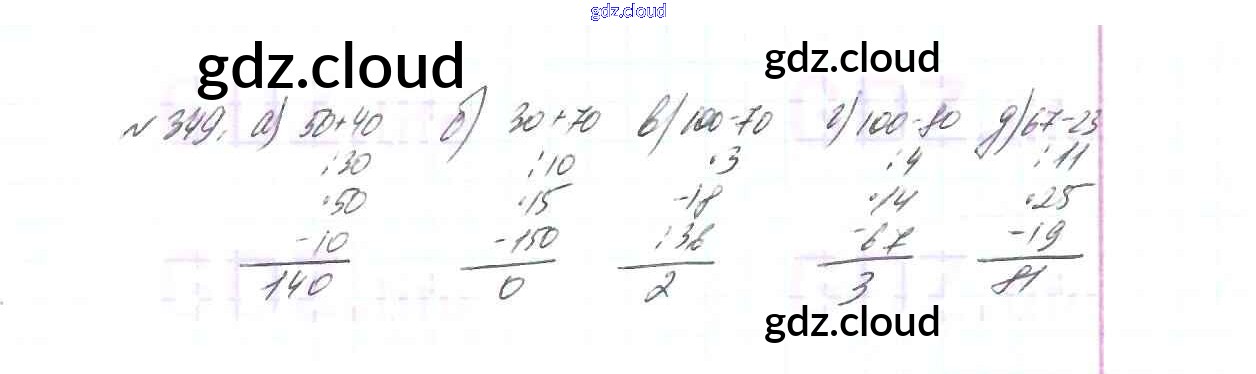 gdz.cloud
gdz.cloud gdz.cloud
№ 349. а) 50+40 б) 30+70 в) 100-70 г) 100-80 д) 67-23
:30 :10 ·3 :4 :11
·50 ·15 -18 ·14 ·25
-10 -150 :36 -67 -19
140 0 2 3 81
gdz.cloud